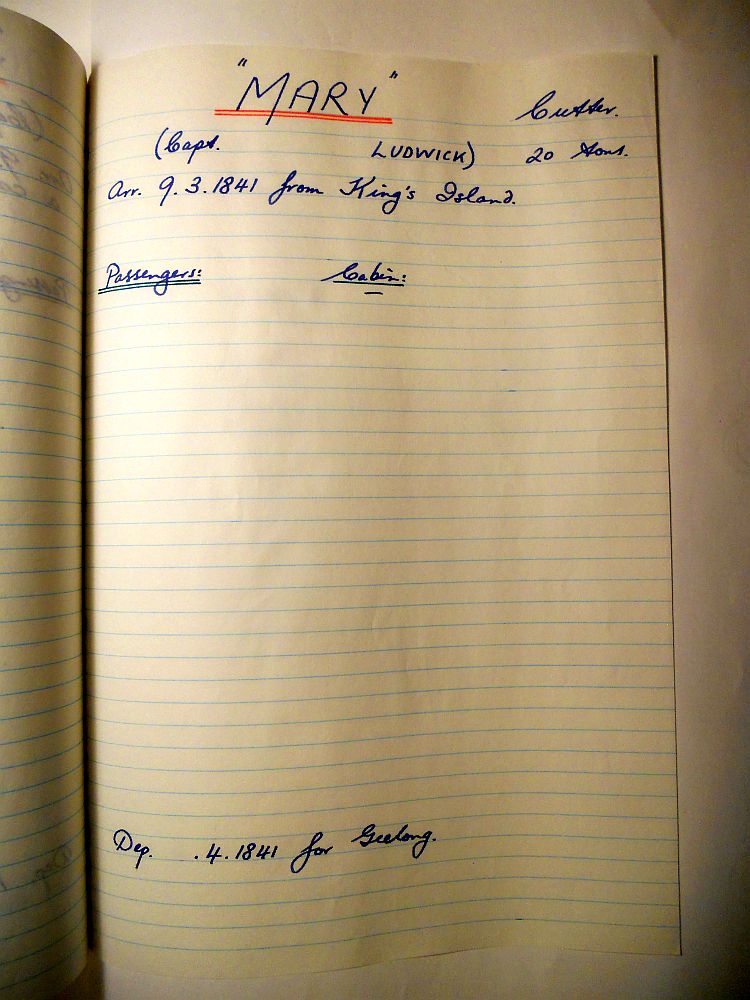 "MARY" Cutter.
(Capt. LUDWICK) 20 tons.
Arr. 9.3.1841 from King's Island.
Passengers: Cabin:
Dep. .4.1841 for Geelong.